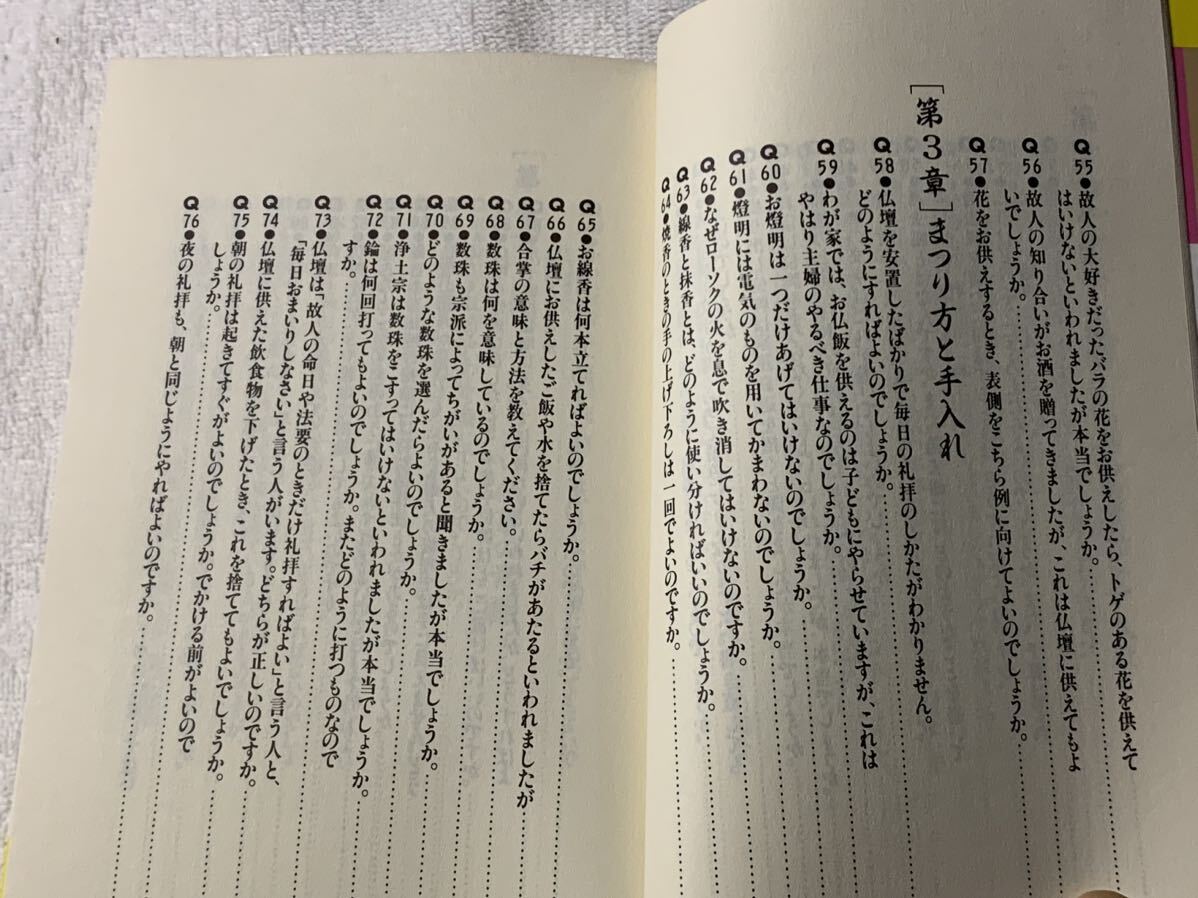 Q55●故人の大好きだったバラの花をお供えしたら、トゲのある花を供えて
はいけないといわれましたが本当でしょうか。
Q56●故人の知り合いがお酒を贈ってきましたが、これは仏壇に供えてもよ
いでしょうか。
Q57●花をお供えするとき、表側をこちら側に向けてよいのでしょうか。
[第3章]まつり方と手入れ
Q58●仏壇を安置したばかりで毎日の礼拝のしかたがわかりません。
どのようにすればよいのでしょうか。
Q59●わが家では、お仏飯を供えるのは子どもにやらせていますが、これは
やはり主婦のやるべき仕事なのでしょうか。
Q60●お燈明は一つだけあげてはいけないのでしょうか。
Q61●燈明には電気のものを用いてかまわないのでしょうか。
Q62●なぜローソクの火を息で吹き消してはいけないのですか。
Q63●線香と抹香とは、どのように使い分ければいいのでしょうか。
Q64●焼香のときの手の上げ下ろしは一回でよいのですか。
Q65●お線香は何本立てればよいのでしょうか。
Q66●仏壇にお供えしたご飯や水を捨てたらバチがあたるといわれましたが
Q67●合掌の意味と方法を教えてください。
Q68●数珠は何を意味しているのでしょうか。
Q69●数珠も宗派によってちがいがあると聞きましたが本当でしょうか。
Q70●どのような数珠を選んだらよいのでしょうか。
Q71●浄土宗は数珠をこすってはいけないといわれましたが本当でしょうか。
Q72●鈴は何回打ってもよいのでしょうか。またどのように打つものなので
すか。
Q73●仏壇は「故人の命日や法要のときだけ礼拝すればよい」と言う人と、
「毎日おまいりしなさい」と言う人がいます。どちらが正しいのですか。
Q74●仏壇に供えた飲食物を下げたとき、これを捨ててもよいでしょうか。
Q75●朝の礼拝は起きてすぐがよいのでしょうか。でかける前がよいので
しょうか。
Q76●夜の礼拝も、朝と同じようにやればよいのですか。